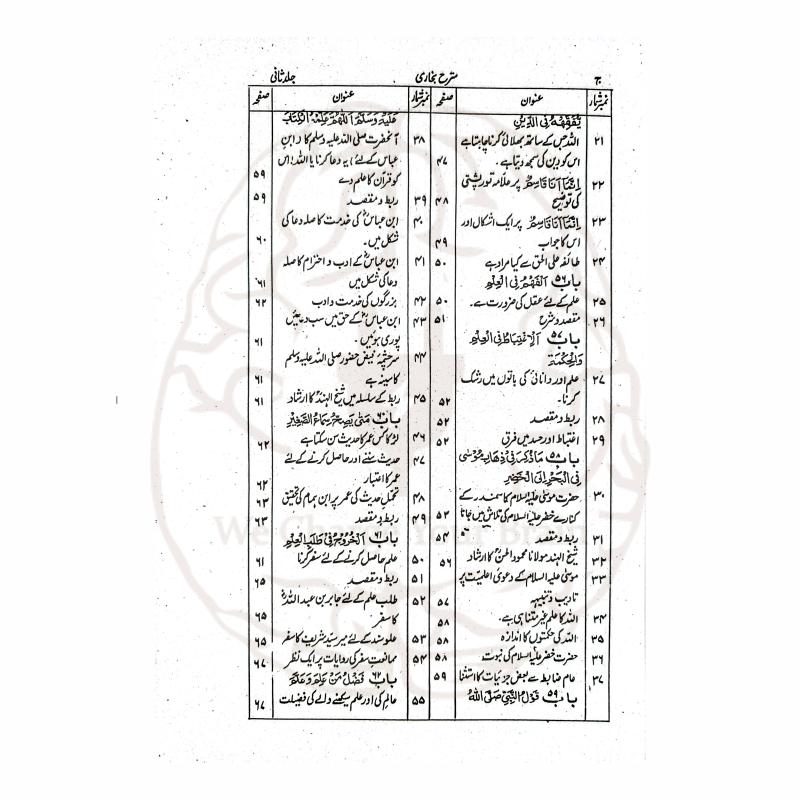 ج شرح بخاری جلد ثانی
نمبر شمار عنوان صفحہ
یُفَقِّهْهُ فِی الدِّیْنِ
۲۱ اللہ جس کے ساتھ بھلائی کرنا چاہتا ہے
اس کو دین کی سمجھ دیتا ہے۔ ۴۷
۲۲ اِنَّمَا اَنَا قَاسِمٌ پر علامہ تورپشتی
کی توضیح ۴۸
۲۳ اِنَّمَا اَنَا قَاسِمٌ پر ایک اشکال اور
اس کا جواب ۴۹
۲۴ طائفہ علی الحق سے کیا مراد ہے ۵۰
باب ۵۶ اَلْفَهْمُ فِی الْعِلْمِ
۲۵ علم کے لئے عقل کی ضرورت ہے۔ ۵۰
۲۶ مقصد و شرح ۵۱
باب ۵۷ اَلْاِغْتِبَاطُ فِی الْعِلْمِ
وَالْحِکْمَةِ
۲۷ علم اور دانائی کی باتوں میں رشک
کرنا۔ ۵۲
۲۸ ربط و مقصد ۵۲
۲۹ اغتباط اور حسد میں فرق ۵۲
باب ۵۸ مَا ذُکِرَ فِیْ ذِهَابِ مُوْسٰی
فِی الْبَحْرِ اِلَی الْخَضِرِ
۳۰ حضرت موسیٰ علیہ السلام کا سمندر کے
کنارے خضر علیہ السلام کی تلاش میں جانا ۵۳
۳۱ ربط و مقصد ۵۴
۳۲ شیخ الہند مولانا محمود الحسنؒ کا ارشاد ۵۶
۳۳ موسیٰ علیہ السلام کے دعویٰ اعلمیت پر
تادیب و تنبیہ ۵۷
۳۴ اللہ کا علم غیر متناہی ہے۔ ۵۸
۳۵ اللہ کی حکمتوں کا اندازہ ۵۸
۳۶ حضرت خضر علیہ السلام کی نبوت ۵۸
۳۷ عام ضابطہ سے بعض جزئیات کا استثنا ۵۹
باب ۵۹ قَوْلُ النَّبِیِّ صَلَّی اللهُ
نمبر شمار عنوان صفحہ
عَلَیْهِ وَسَلَّمَ اَللّٰهُمَّ عَلِّمْهُ الْکِتَابَ
۳۸ آنحضرت صلی اللہ علیہ وسلم کا (ابن
عباس کے لئے) یہ دعا کرنا یا اللہ! اس
کو قرآن کا علم دے ۵۹
۳۹ ربط و مقصد ۵۹
۴۰ ابن عباسؓ کی خدمت کا صلہ دعا کی
شکل میں۔ ۶۰
۴۱ ابن عباسؓ کے ادب و احترام کا صلہ
دعا کی شکل میں ۶۱
۴۲ بزرگوں کی خدمت و ادب ۶۲
۴۳ ابن عباسؓ کے حق میں سب دعائیں
پوری ہوئیں۔ ۶۱
۴۴ سرچشمۂ فیض حضور صلی اللہ علیہ وسلم
کا سینہ ہے ۶۱
۴۵ ربط کے سلسلہ میں شیخ الہندؒ کا ارشاد ۶۱
باب ۶۰ مَتٰی یَصِحُّ سِمَاعُ الصَّغِیْرِ
۴۶ لڑکا کس عمر کا حدیث سن سکتا ہے ۶۲
۴۷ حدیث سننے اور حاصل کرنے کے لئے
عمر کا اعتبار ۶۲
۴۸ تحمل حدیث کی عمر پر ابن ہمام کی تحقیق ۶۳
۴۹ ربط و مقصد ۶۳
باب ۶۱ اَلْخُرُوْجُ فِیْ طَلَبِ الْعِلْمِ
۵۰ علم حاصل کرنے کے لئے سفر کرنا ۶۱
۵۱ ربط و مقصد ۶۵
۵۲ طلب علم کے لئے جابر بن عبد اللہؓ
کا سفر ۶۵
۵۳ علو سند کے لئے میر سید شریف کا سفر ۶۵
۵۴ ممانعت سفر کی روایات پر ایک نظر ۶۷
باب ۶۲ فَضْلُ مَنْ عَلِمَ وَعَلَّمَ
۵۵ عالم کی اور علم سیکھنے والے کی فضیلت ۶۷